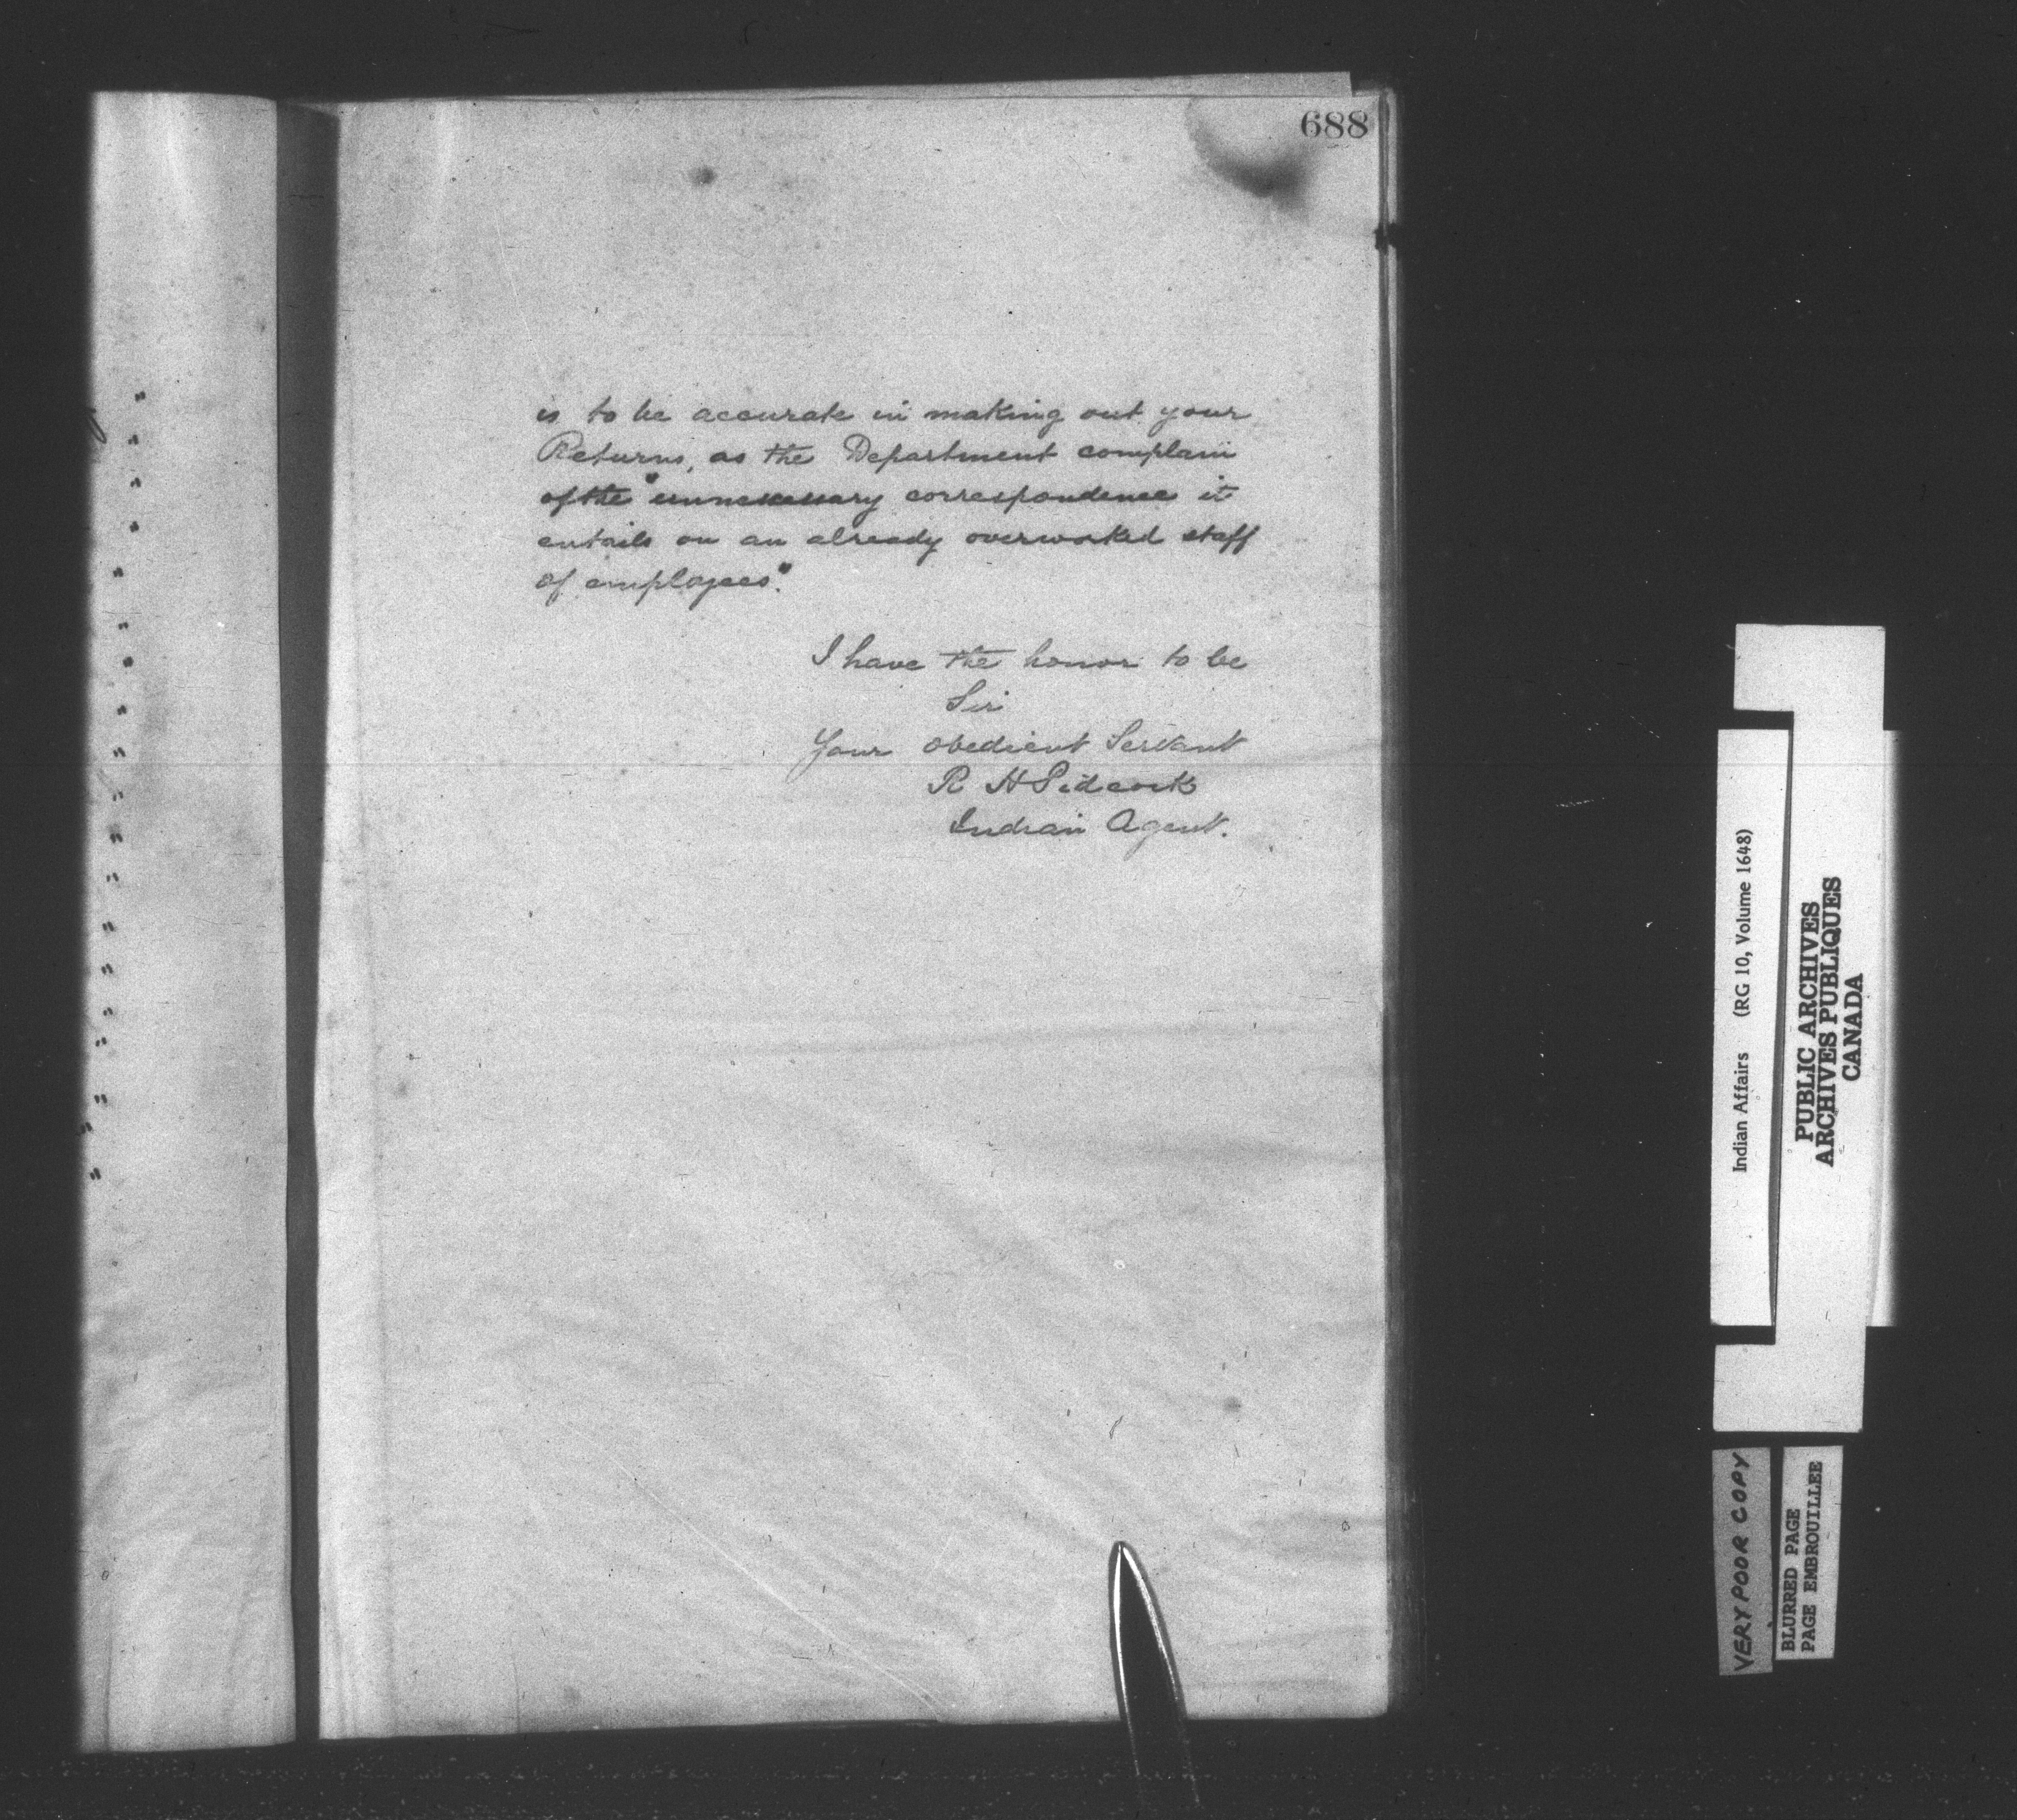 688
is to be accurate in making out your
Returns, as the Department complain
of the "unnecessary correspondence it
entails on an already overworked staff
of employees".
I have the honor to be
Sir
Your obedient Servant
R H Pidcock
Indian Agent.
Indian Affairs (RG 10, Volume 1648)
PUBLIC ARCHIVES
ARCHIVES PUBLIQUES
CANADA
VERY POOR COPY
BLURRED PAGE
PAGE EMBROUILLEE